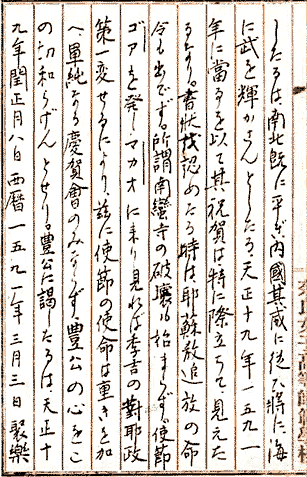 したるは、南北既に平ぎ、内國其威に従ひ將に海
に武を輝かさんとしたる天正十九年一五九一
年に當るを以て其祝賀は特に際立ちて見えた
るなるべし書状認めたる時は耶蘇教追放の命
令も出でず所謂南蠻寺の破壞も始まらず使節
ゴアを發しマカオに来り見れば李吉の對耶政
第一変せるにより、茲に使節の使命は重きを加
へ、單純なる慶賀會のみならず、豊公の心をこ
の切和らげんとせり。豊公に謁したるは、天正十
九年閏正月八日西暦一五九一年三月三日聚樂